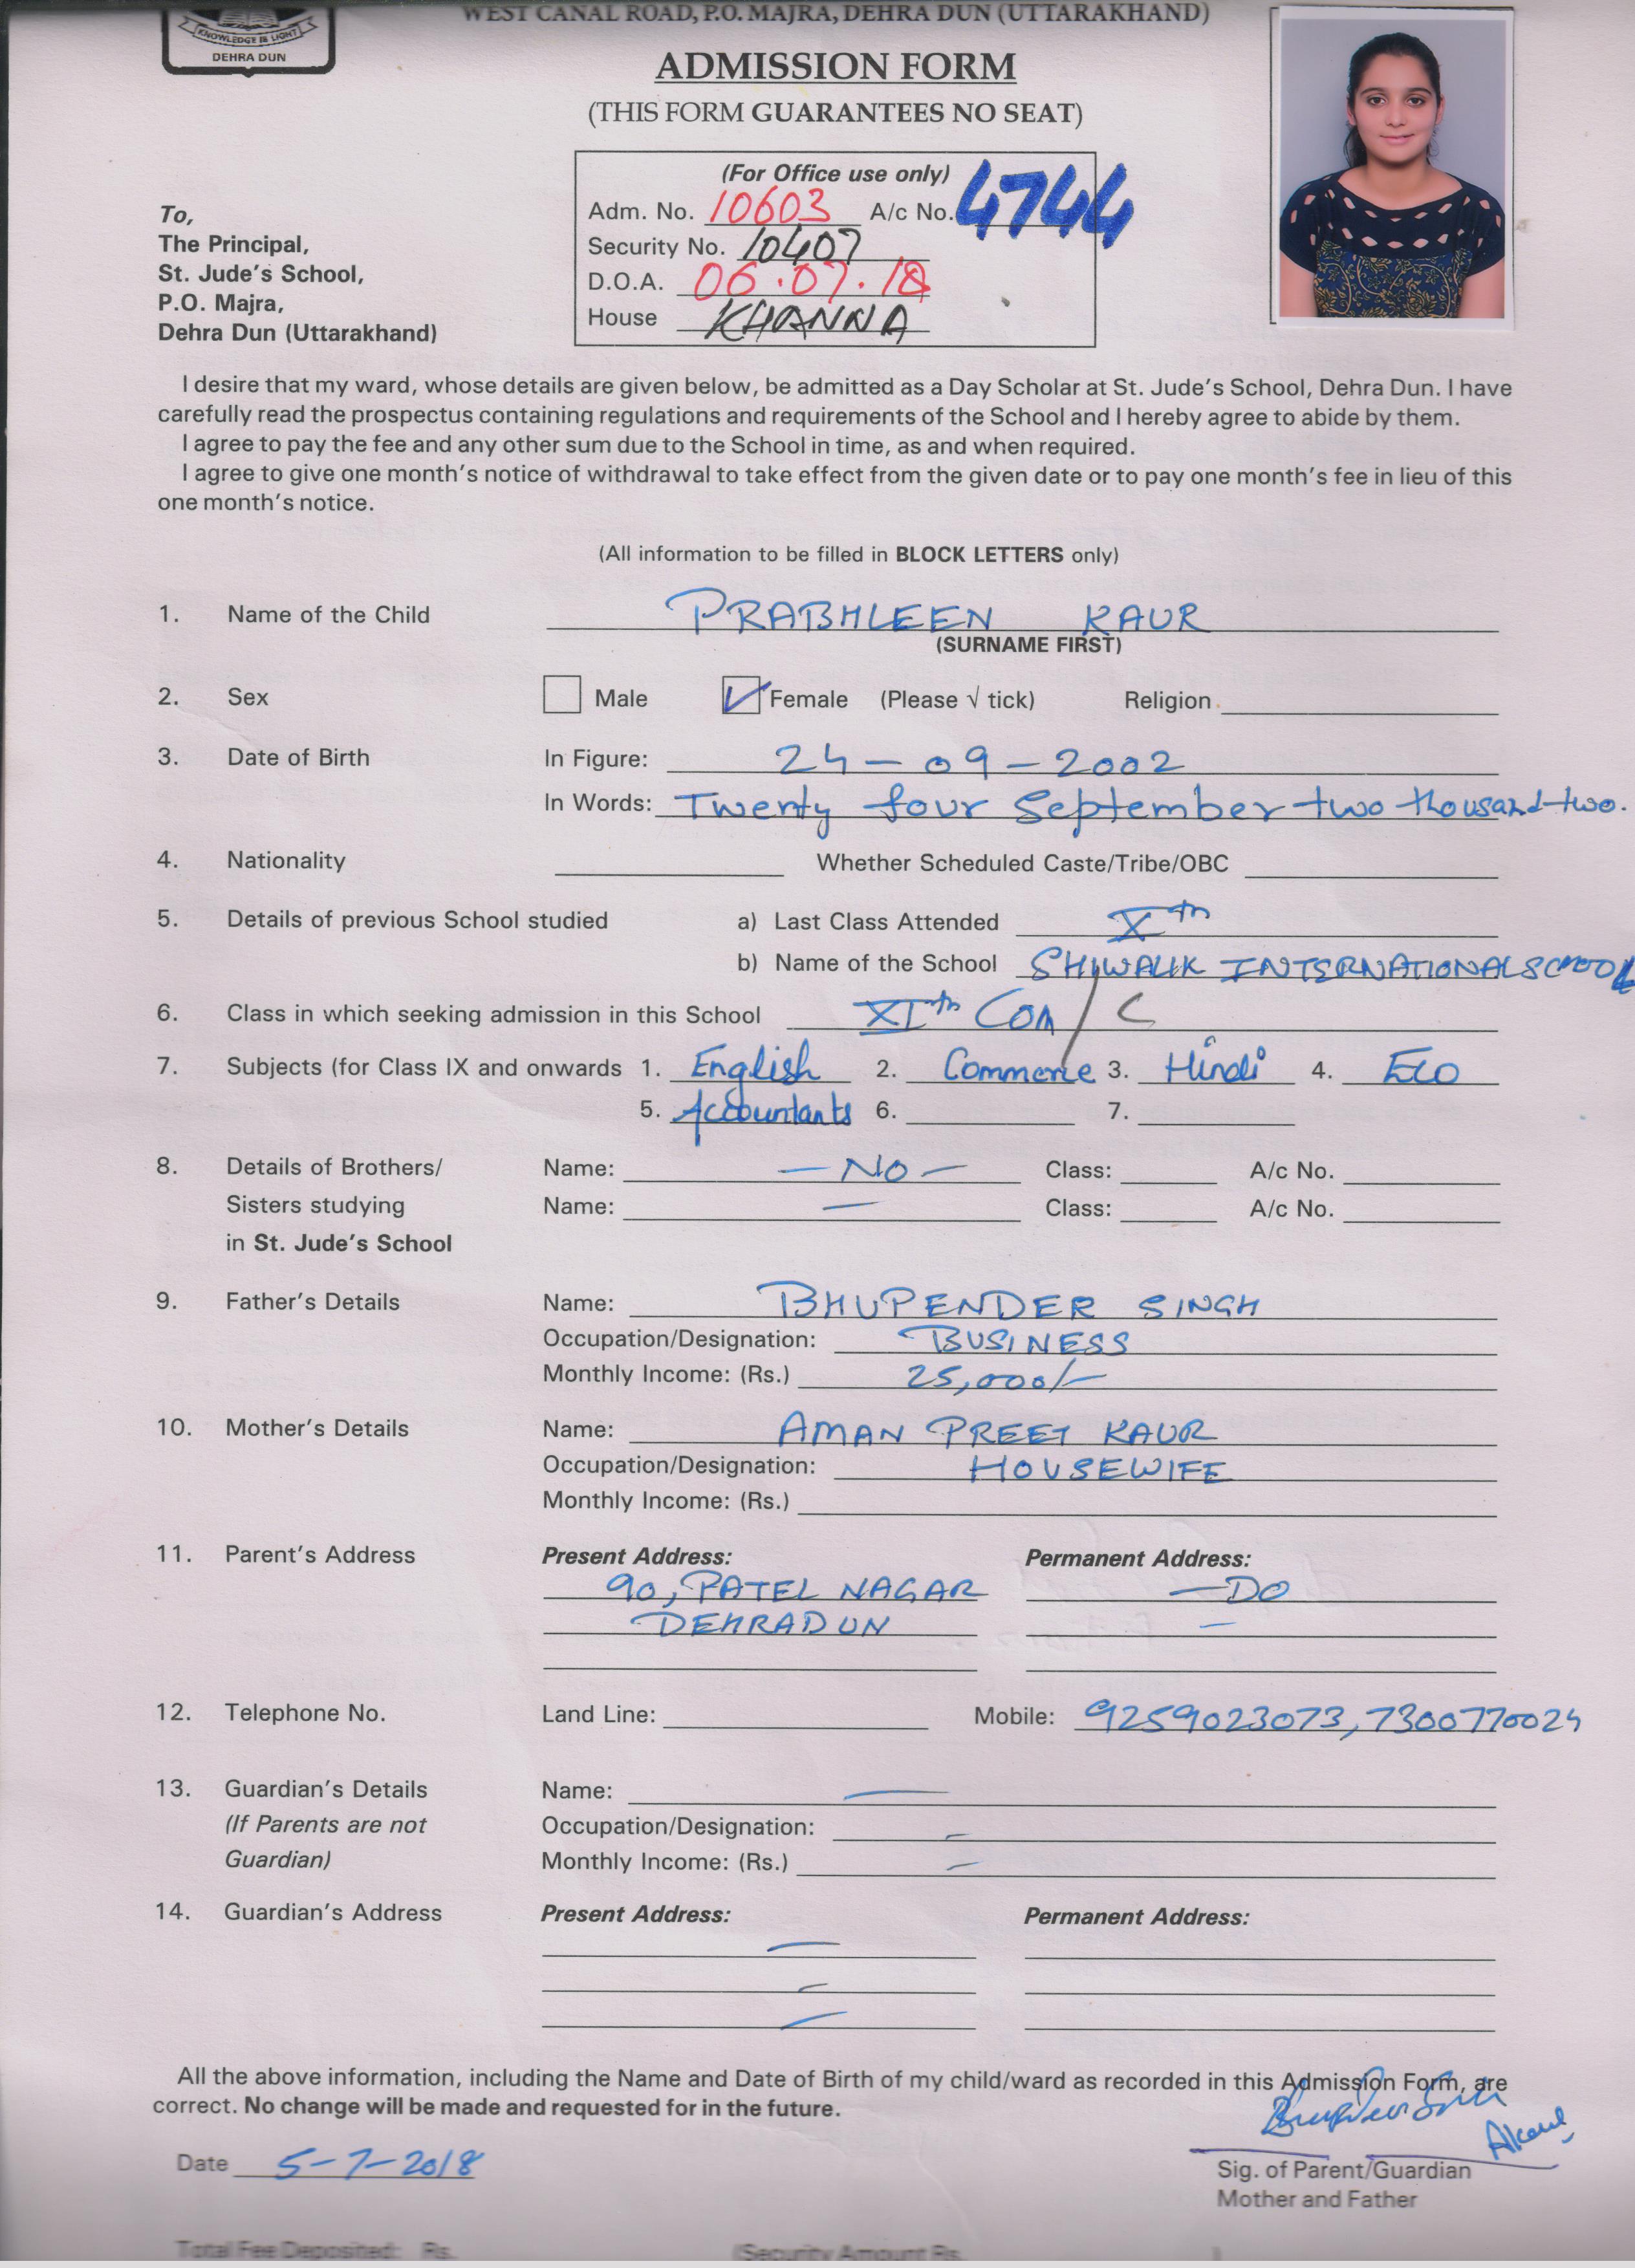 WEST CANAL ROAD, P.O. MAJRA, DEHRA DUN (UTTARAKHAND)
KNOWLEDGE IS LIGHT
DEHRA DUN
ADMISSION FORM
(THIS FORM GUARANTEES NO SEAT)
(For Office use only)
Adm. No. 10603 A/c No. 4744
Security No. 10407
D.O.A. 06.07.18
House KHANNA
To,
The Principal,
St. Jude's School,
P.O. Majra,
Dehra Dun (Uttarakhand)
I desire that my ward, whose details are given below, be admitted as a Day Scholar at St. Jude's School, Dehra Dun. I have
carefully read the prospectus containing regulations and requirements of the School and I hereby agree to abide by them.
I agree to pay the fee and any other sum due to the School in time, as and when required.
I agree to give one month's notice of withdrawal to take effect from the given date or to pay one month's fee in lieu of this
one month's notice.
(All information to be filled in BLOCK LETTERS only)
1. Name of the Child PRABHLEEN KAUR
(SURNAME FIRST)
2. Sex Male Female (Please √ tick) Religion
3. Date of Birth In Figure: 24-09-2002
In Words: Twenty four September two thousand two.
4. Nationality Whether Scheduled Caste/Tribe/OBC
5. Details of previous School studied a) Last Class Attended Xth
b) Name of the School SHIWALIK INTERNATIONAL SCHOOL
6. Class in which seeking admission in this School XIth COM / C
7. Subjects (for Class IX and onwards 1. English 2. Commerce 3. Hindi 4. Eco
5. Accountants 6. 7.
8. Details of Brothers/ Name: — NO — Class: A/c No.
Sisters studying Name: — Class: A/c No.
in St. Jude's School
9. Father's Details Name: BHUPENDER SINGH
Occupation/Designation: BUSINESS
Monthly Income: (Rs.) 25,000/-
10. Mother's Details Name: AMAN PREET KAUR
Occupation/Designation: HOUSEWIFE
Monthly Income: (Rs.)
11. Parent's Address Present Address: Permanent Address:
90, PATEL NAGAR — DO
DEHRADUN —
12. Telephone No. Land Line: Mobile: 9259023073, 7300770024
13. Guardian's Details Name: —
(If Parents are not Occupation/Designation: —
Guardian) Monthly Income: (Rs.) —
14. Guardian's Address Present Address: Permanent Address:
—
—
—
All the above information, including the Name and Date of Birth of my child/ward as recorded in this Admission Form, are
correct. No change will be made and requested for in the future.
Date 5-7-2018
Sig. of Parent/Guardian
Mother and Father
Total Fee Deposited: Rs. (Security Amount Rs.